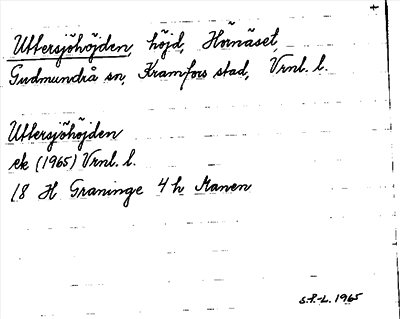 +
Uttersjöhöjden, höjd, Hornäset,
Gudmundrå sn, Kramfors stad, Vrnl. l.
Uttersjöhöjden
ek (1965) Vrnl. l.
18 H Graninge 4 h Manen
S.F.-L. 1965